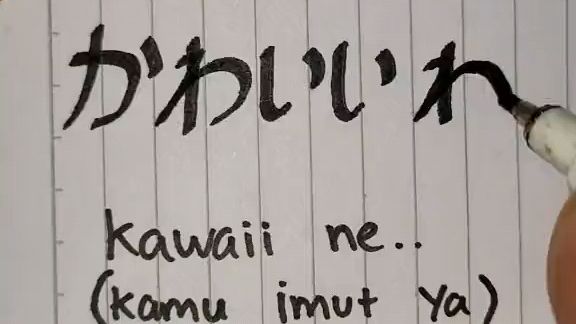 かわいい
kawaii ne..
(kamu imut ya)